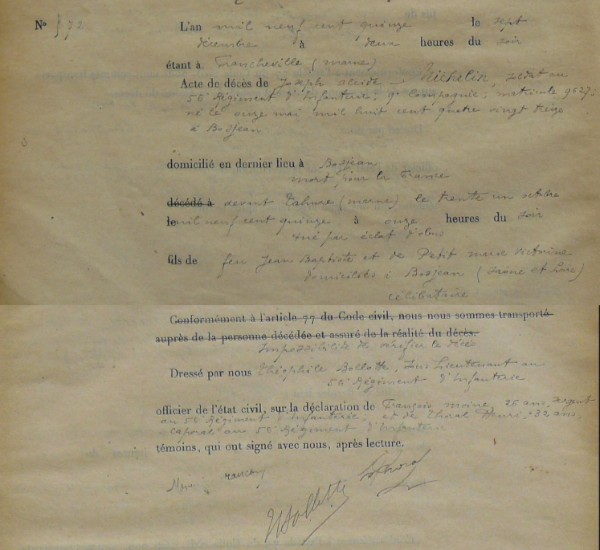 Nº 572
L'an mil neuf cent quinze le sept
décembre à deux heures du soir
étant à Francheville (marne)
Acte de décès de Joseph Nichelin, soldat au
56 Régiment d'Infanterie, 9e Compagnie, matricule 9527
né le onze mai mil huit cent quatre vingt treize
à Bosjean
domicilié en dernier lieu à Bosjean
mort pour la France
décédé à devant Tahure (marne) le trente un octobre
le mil neuf cent quinze à onze heures du soir
tué par éclat d'obus
fils de feu Jean Baptiste et de Petit marie Victorine
domiciliés à Bosjean (Saône et Loire)
célibataire
Conformément à l'article 77 du Code civil, nous nous sommes transporté
auprès de la personne décédée et assuré de la réalité du décès.
Impossibilité de vérifier le décès
Dressé par nous Théophile Bollotte, Sous Lieutenant au
56 Régiment d'Infanterie
officier de l'état civil, sur la déclaration de François moine, 25 ans, sergent
au 56 Régiment d'Infanterie, et de Henri, 32 ans,
caporal au 56 Régiment d'Infanterie
témoins, qui ont signé avec nous, après lecture.